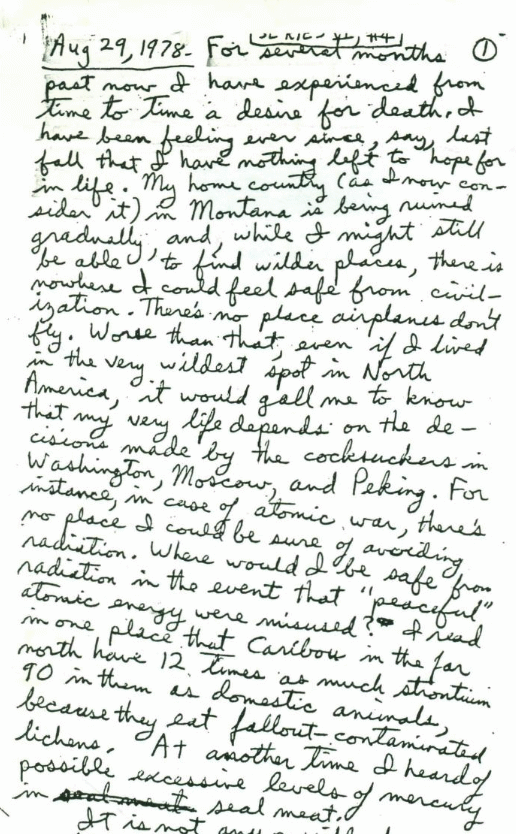 [SERIES VI, #4]
Aug 29, 1978. For several months ①
past now I have experienced from
time to time a desire for death. I
have been feeling ever since, say, last
fall that I have nothing left to hope for
in life. My home country (as I now con-
sider it) in Montana is being ruined
gradually, and, while I might still
be able to find wilder places, there is
nowhere I could feel safe from civil-
ization. There's no place airplanes don't
fly. Worse than that, even if I lived
in the very wildest spot in North
America, it would gall me to know
that my very life depends on the de-
cisions made by the cocksuckers in
Washington, Moscow, and Peking. For
instance, in case of atomic war, there's
no place I could be sure of avoiding
radiation. Where would I be safe from
radiation in the event that "peaceful"
atomic energy were misused? I read
in one place that Caribou in the far
north have 12 times as much strontium
90 in them as domestic animals,
because they eat fallout-contaminated
lichens. At another time I heard of
possible excessive levels of mercury
in seal meat seal meat.
It is not